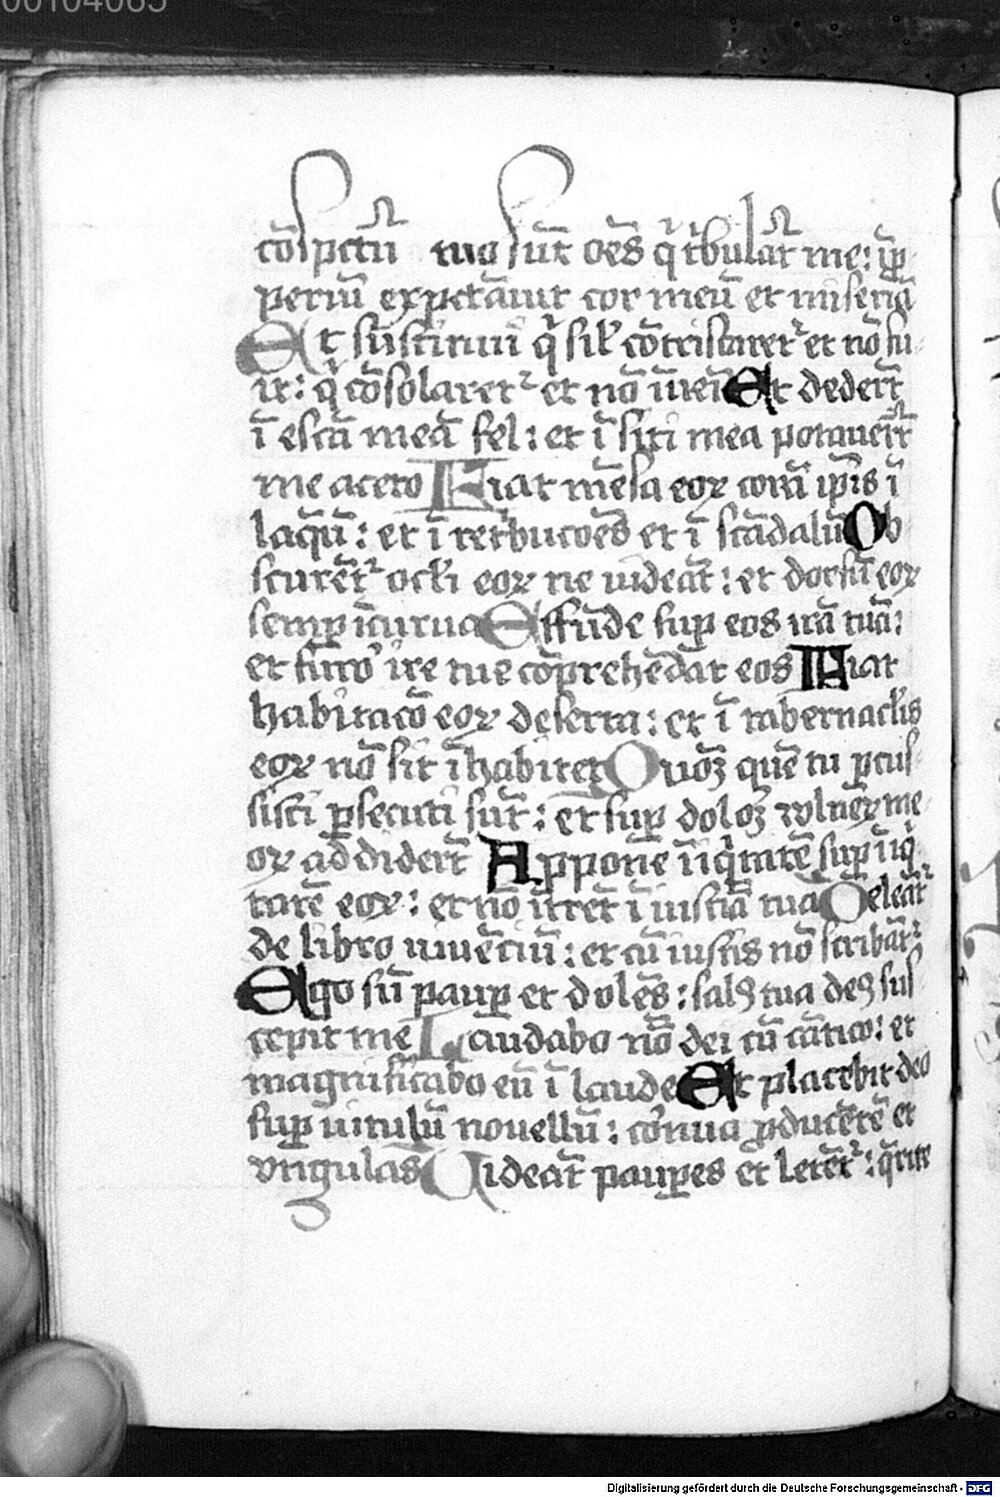 00104065
cōspctū tuo sūt oēs q̄ tͥbulāt me: ip̄
periū expctāuit cor meū et miseriā
Et sustinui q̄ sil' cōtristaretᷣ et nō fu
it: q̄ cōsolaretᷣ et nō īueī Et dederūt
ī escā meā fel: et ī siti mea potauerūt
me aceto Fiat mēsa eoꝝ corā ip̄is ī
laq̄ū: et ī retͥbucōēs et ī scādalū Ob
scurētᷣ ocl̄i eoꝝ ne uideāt: et dorsū eoꝝ
semꝑ īcurua Effūde suꝑ eos irā tuā:
et furoʼ ire tue cōprehēdāt eos Fiat
habitacō eoꝝ deserta: et ī tabernacl̄is
eoꝝ nō sit īhabitet Quoꝫ quē tu ꝑcus
sisti ꝑsecuti sūt: et suꝑ doloꝫ vulneꝝ me
oꝝ addiderūt Appone īiqͥtatē suꝑ īiqͥ
tatē eoꝝ: et nō ītrēt ī iusticiā tuā Deleātᷣ
de libro uiuēciū: et cū iustis nō scribātᷣ
Ego sū pauꝑ et dolēs: salꝰ tua deꝰ sus
cepit me Laudabo nōē dei cū cātico: et
magnificabo eū ī laude Et placebit deo
suꝑ uitulū nouellū: cornua ꝓducētē et
vngulas Uideāt pauꝑes et letētᷣ: q̄rite
Digitalisierung gefördert durch die Deutsche Forschungsgemeinschaft - DFG